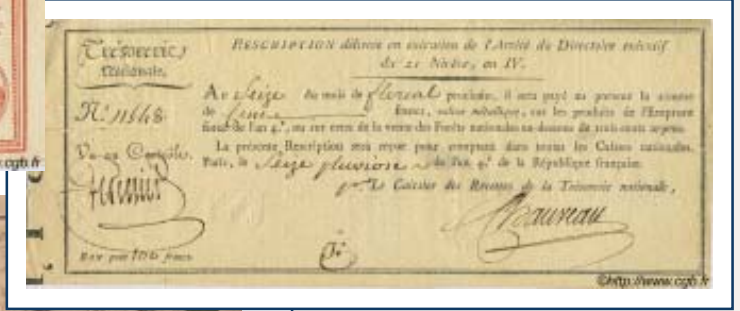 Trésorerie
Nationale.
N.º 11648
Vu au Contrôle.
Bon pour 100 francs
RESCRIPTION délivrée en exécution de l'Arrêté du Directoire exécutif
du 21 Nivôse, an IV.
Au Seize du mois de floreal prochain, il sera payé au porteur la somme
de francs, valeur métallique, sur les produits de l'Emprunt
forcé de l'an 4.e, ou sur ceux de la vente des Forêts nationales au-dessous de trois cents arpens.
La présente Rescription sera reçue pour comptant dans toutes les Caisses nationales.
Paris, le Seize pluviose de l'an 4.e de la République française.
Le Caissier des Recettes de la Trésorerie nationale,
©http://www.cgb.fr
cgb.fr